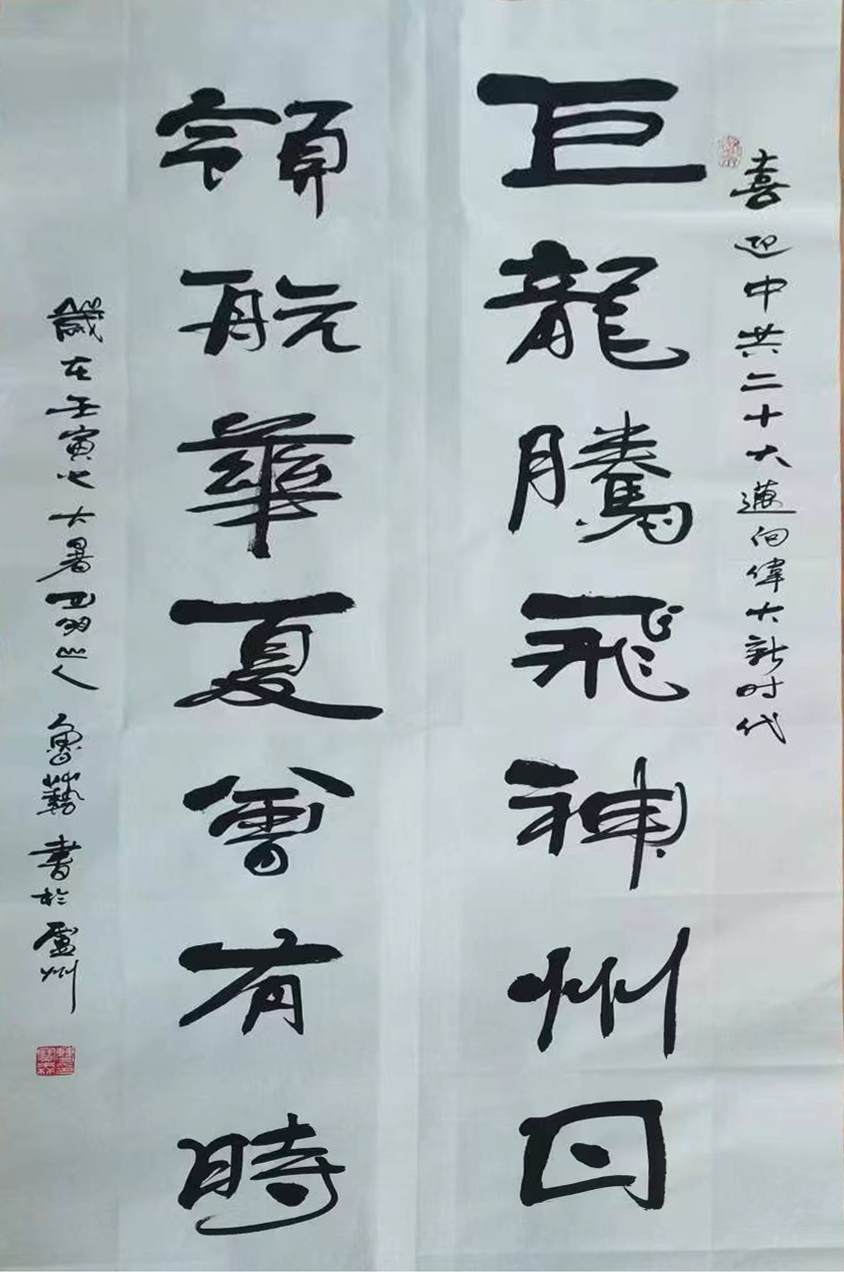 喜迎中共二十大邁向偉大新时代
巨龍騰飛神州日
領航華夏會有時
歲在壬寅之大暑山人魯藝書於廬州